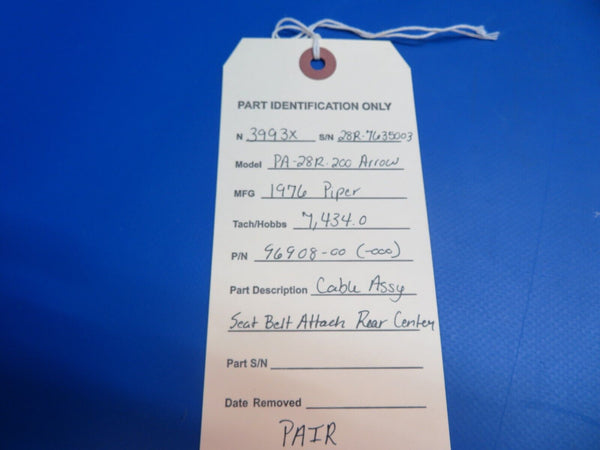 PART IDENTIFICATION ONLY
N 3993X S/N 28R-7635003
Model PA-28R-200 Arrow
MFG 1976 Piper
Tach/Hobbs 7,434.0
P/N 96908-00 (-000)
Part Description Cable Assy
Seat Belt Attach Rear Center
Part S/N
Date Removed
PAIR